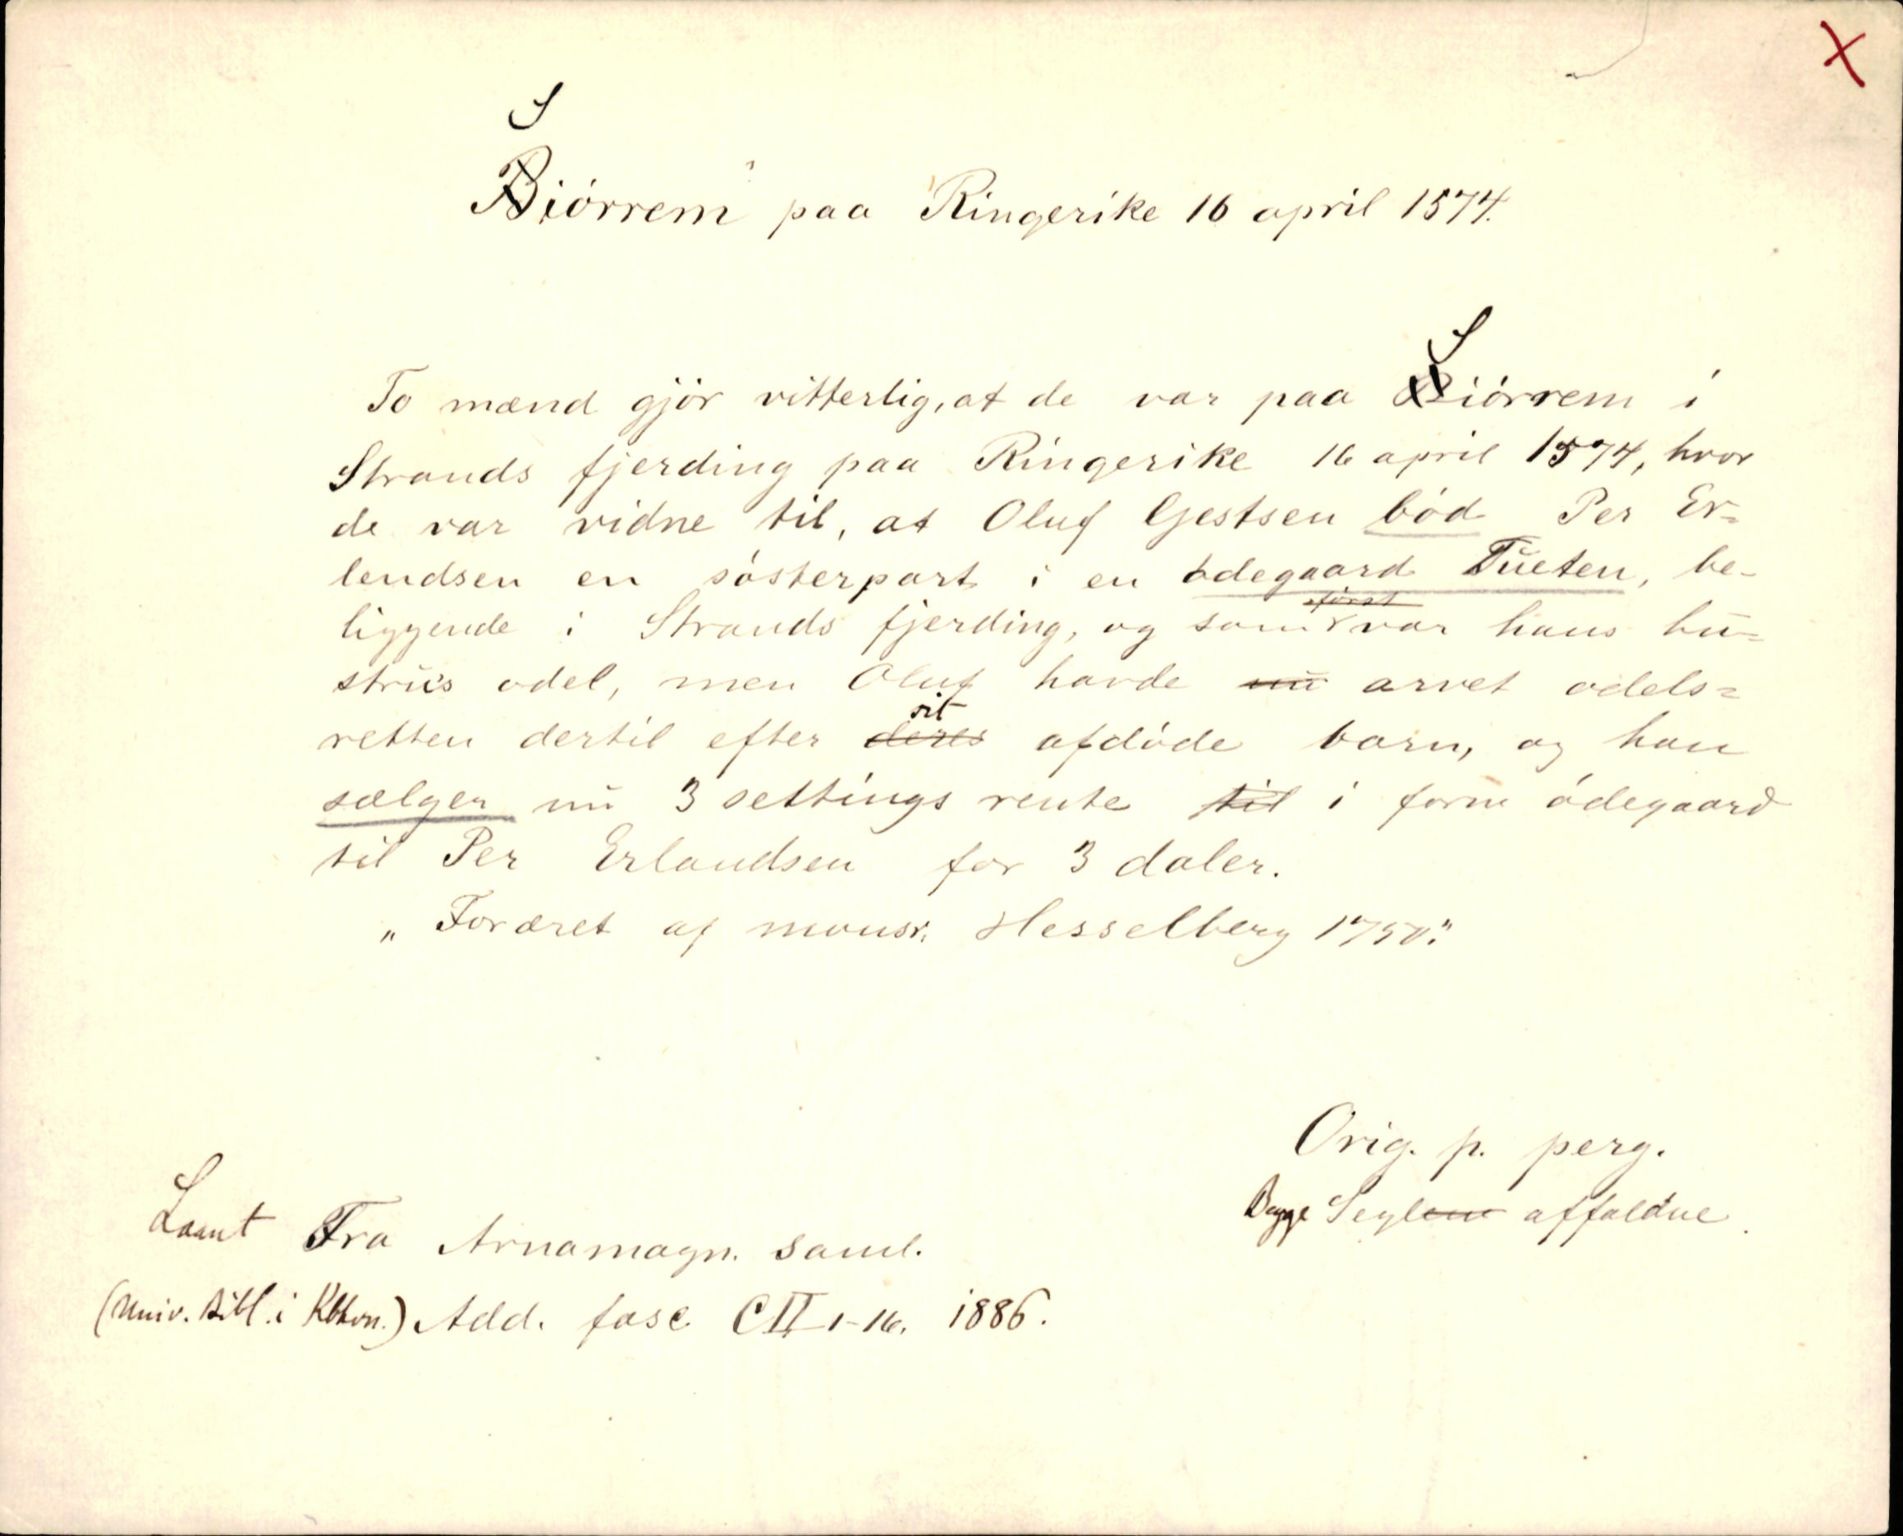 X
S
Biórrem paa Ringerike 16 april 1574.
S
To mænd gjór vitterlig, at de var paa Biórrem i
Strands fjerding paa Ringerike 16 april 1574, hvor
de var vidne til, at Oluf Gestsen bód Per Er=
lendsen en sósterpart i en ódegaard Tueten, be-
først
liggende i Strands fjerding, og som var hans hu=
strus odel, men Oluf havde nu arvet odels=
sit
retten dertil efter deres afdóde barn, og han
sælger nu 3 settings rente til i form ódegaard
til Per Erlandsen for 3 daler.
„Foræret af monsr. Hesselberg 1750."
Orig. p. perg.
Begge Seglene affaldne.
Laant Fra Arnamagn. Saml.
(Univ. Bibl. i Kbhvn.) Add. fasc CII 1-16. 1886.